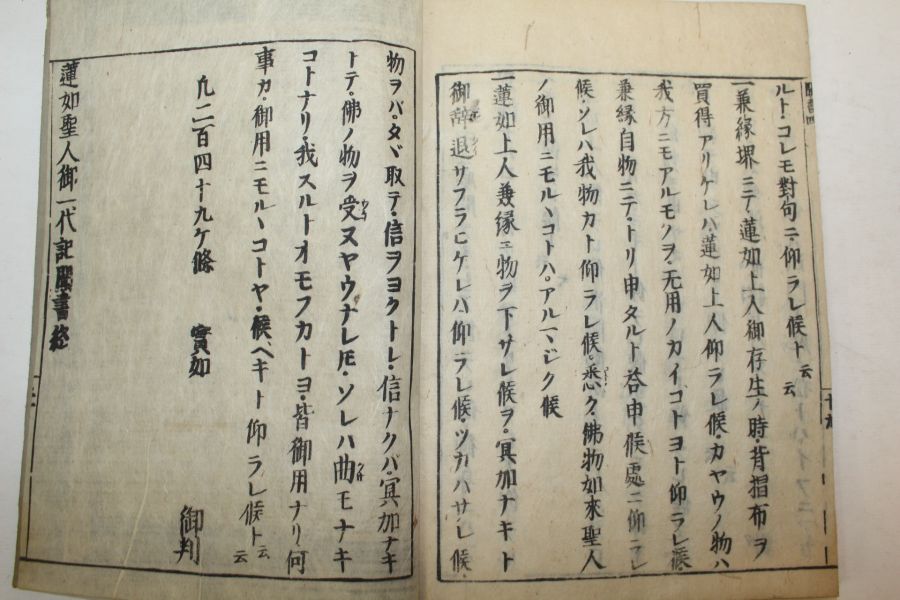 ルト・コレモ對句ニ・仰ラレ候ト云云
一兼緣堺ニテ蓮如上人御存生ノ時・背摺布ヲ
買得アリケレハ・蓮如上人仰ラレ候・カヤウノ物ハ
我方ニモアルモノヲ・无用ノカイコトヨト仰ラレ候・
兼緣自物ニテ・トリ申タルト答申候處ニ仰ラレ
候・ソレハ我物カト仰ラレ候・悉ク・佛物如來聖人
ノ御用ニモルヽコトハ・アルマジク候
一蓮如上人兼緣ニ物ヲ下サレ候ヲ・冥加ナキト
御辞退サフラヒケレハ・仰ラレ候・ツカハサレ候・
物ヲバ・タヾ取テ・信ヲヨクトレ・信ナクバ・冥加ナキ
トテ・佛ノ物ヲ受ヌヤウナレ𪜈・ソレハ曲モナキ
コトナリ・我スルトオモフカトヨ・皆御用ナリ・何
事カ・御用ニモルヽコトヤ・候ヘキト仰ラレ候ト云云
凡二百四十九ケ條 實如 御判
蓮如聖人御一代記聞書終